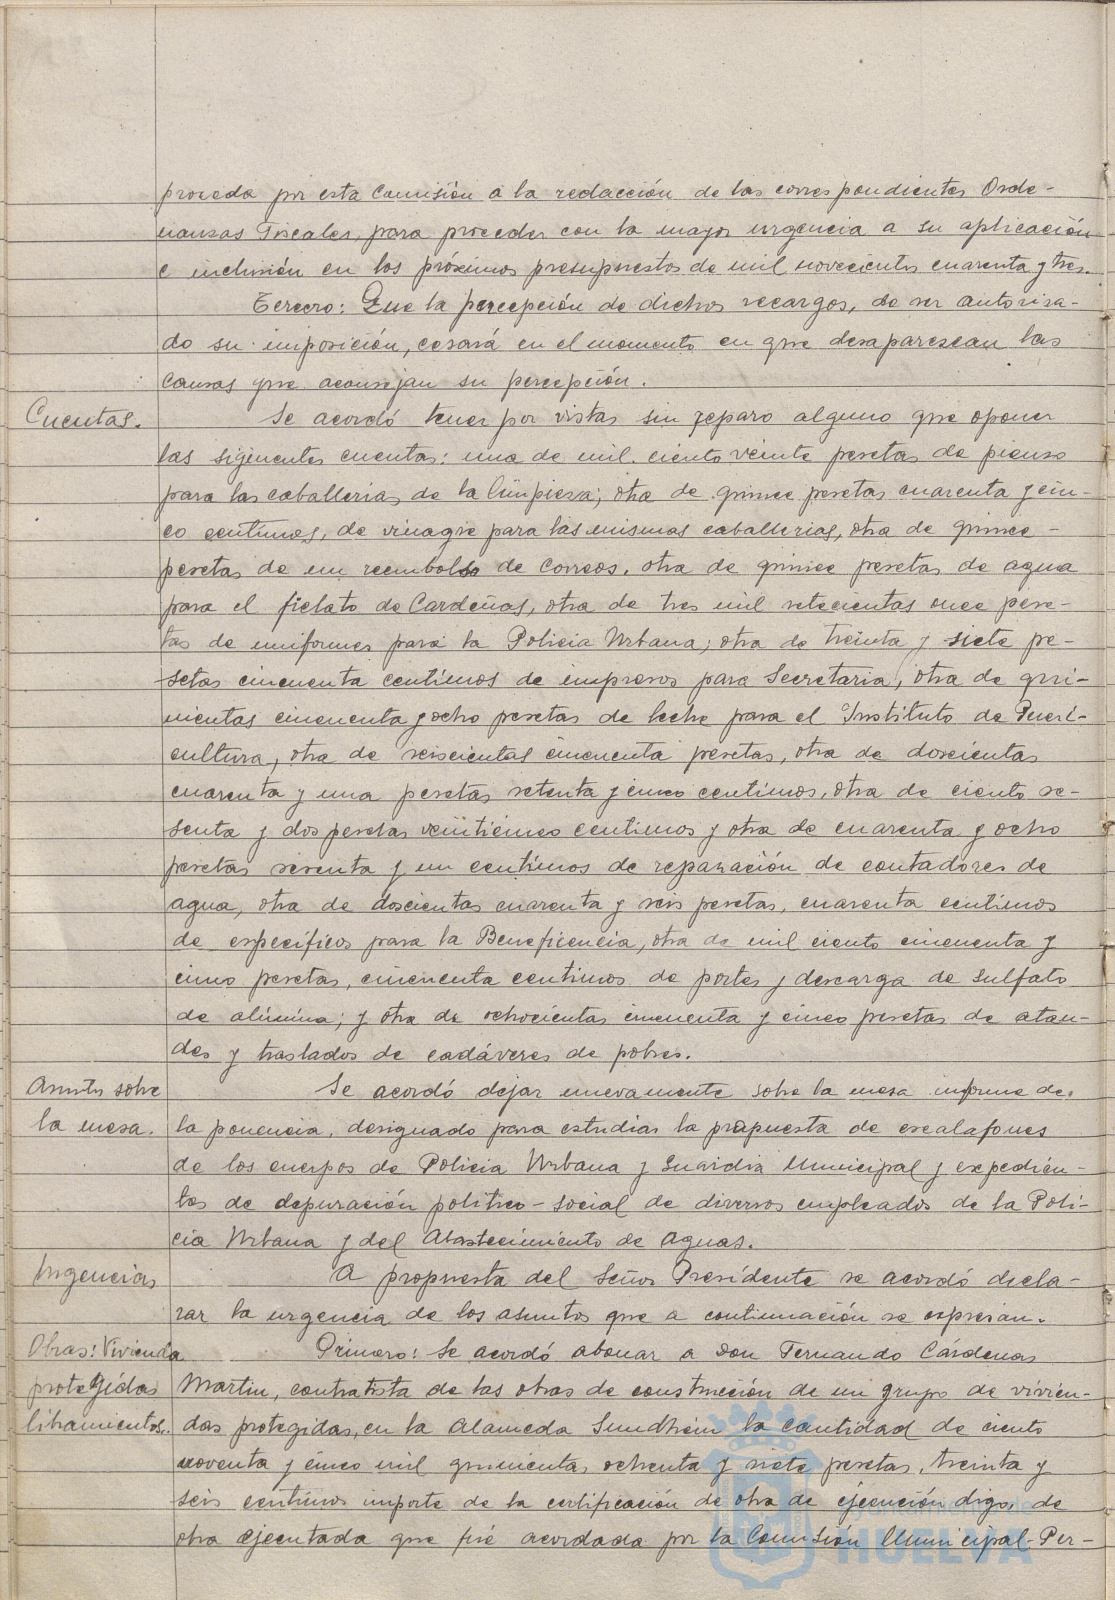 proceda por esta Comisión a la redacción de las correspondientes Orde-
nanzas Fiscales, para proceder con la mayor urgencia a su aplicación
e inclusión en los próximos presupuestos de mil novecientos cuarenta y tres.
Tercero: Que la percepción de dichos recargos, de ser autoriza-
do su imposición, cesará en el momento en que desaparezcan las
causas que aconsejan su percepción.
Cuentas.
Se acordó tener por vistas sin reparo alguno que oponer
las sigiuentes cuentas: una de mil ciento veinte pesetas de pienso
para las caballerias de la limpieza; otra de quince pesetas cuarenta y cin-
co centimos, de vinagre para las mismas caballerias, otra de quince
pesetas de un reembolso de Correos, otra de quince pesetas de agua
para el fielato de Cardeñas, otra de tres mil setecientas once pese-
tas de uniformes para la Policia Urbana; otra de treinta y siete pe-
setas cincuenta centimos de impresos para Secretaria, otra de qui-
nientas cincuenta y ocho pesetas de leche para el Instituto de Pueri-
cultura, otra de seiscientas cincuenta pesetas, otra de doscientas
cuarenta y una pesetas setenta y cinco centimos, otra de ciento se-
senta y dos pesetas veinticinco centimos y otra de cuarenta y ocho
pesetas sesenta y un centimos de reparación de contadores de
agua, otra de doscientas cuarenta y seis pesetas, cuarenta centimos
de específicos para la Beneficencia, otra de mil ciento cincuenta y
cinco pesetas, cincuenta centimos de portes y descarga de sulfato
de alúmina; y otra de ochocientas cincuenta y cinco pesetas de ataú-
des y traslados de cadáveres de pobres.
Asuntos sobre
la mesa.
Se acordó dejar nuevamente sobre la mesa informe de
la ponencia, designado para estudiar la prapuesta de escalafones
de los cuerpos de Policia Urbana y Guardia Municipal y expedien-
tes de depuración politico-social de diversos empleados de la Poli-
cia Urbana y del Abastecimiento de Aguas.
Urgencias
A propuesta del Señor Presidente se acordó decla-
rar la urgencia de los asuntos que a continuación se expresan.
Obras: Vivienda
protegidas
libramientos.
Primero: Se acordó abonar a Don Fernando Cárdenas
Martin, contratista de las obras de construcción de un grupo de vivien-
das protegidas, en la Alameda Sundhein la cantidad de ciento
noventa y cinco mil quinientas ochenta y siete pesetas, treinta y
seis centimos importe de la certificación de obra de ejecución digo, de
obra ejecutada que fué acordada por la Comisión Municipal Per-
Ayuntamiento de
HUELVA